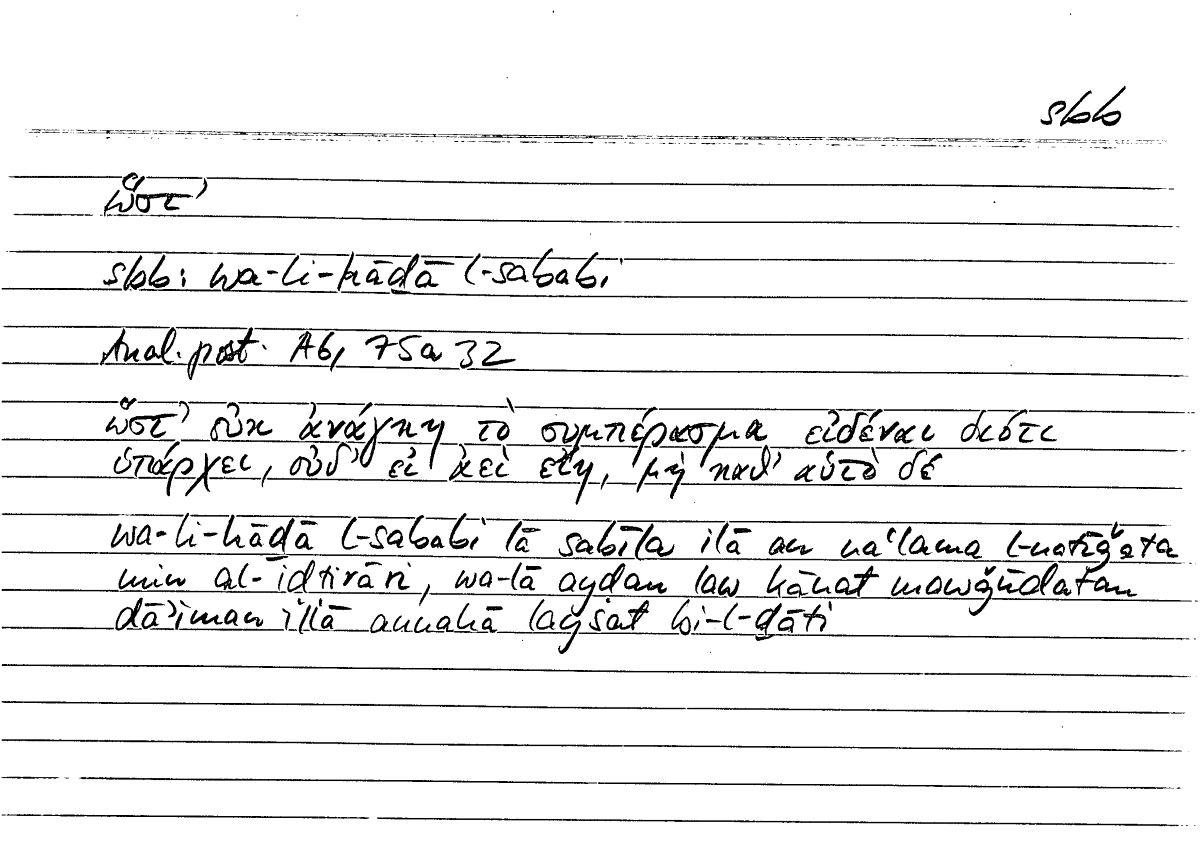 sbb
ὥστ’
sbb: wa-li-hāḏā l-sababi
Anal. post. A6, 75a 32
ὥστ’ οὐκ ἀνάγκη τὸ συμπέρασμα εἰδέναι διότι
ὑπάρχει, οὐδ’ εἰ ἀεὶ εἴη, μὴ καθ’ αὑτὸ δέ
wa-li-hāḏā l-sababi lā sabīla ilā an naʿlama l-natīǧata
min al-idtirāri, wa-lā aydan law kānat mawǧūdatan
dāʾiman illā annahā laysat bi-l-ḏāti